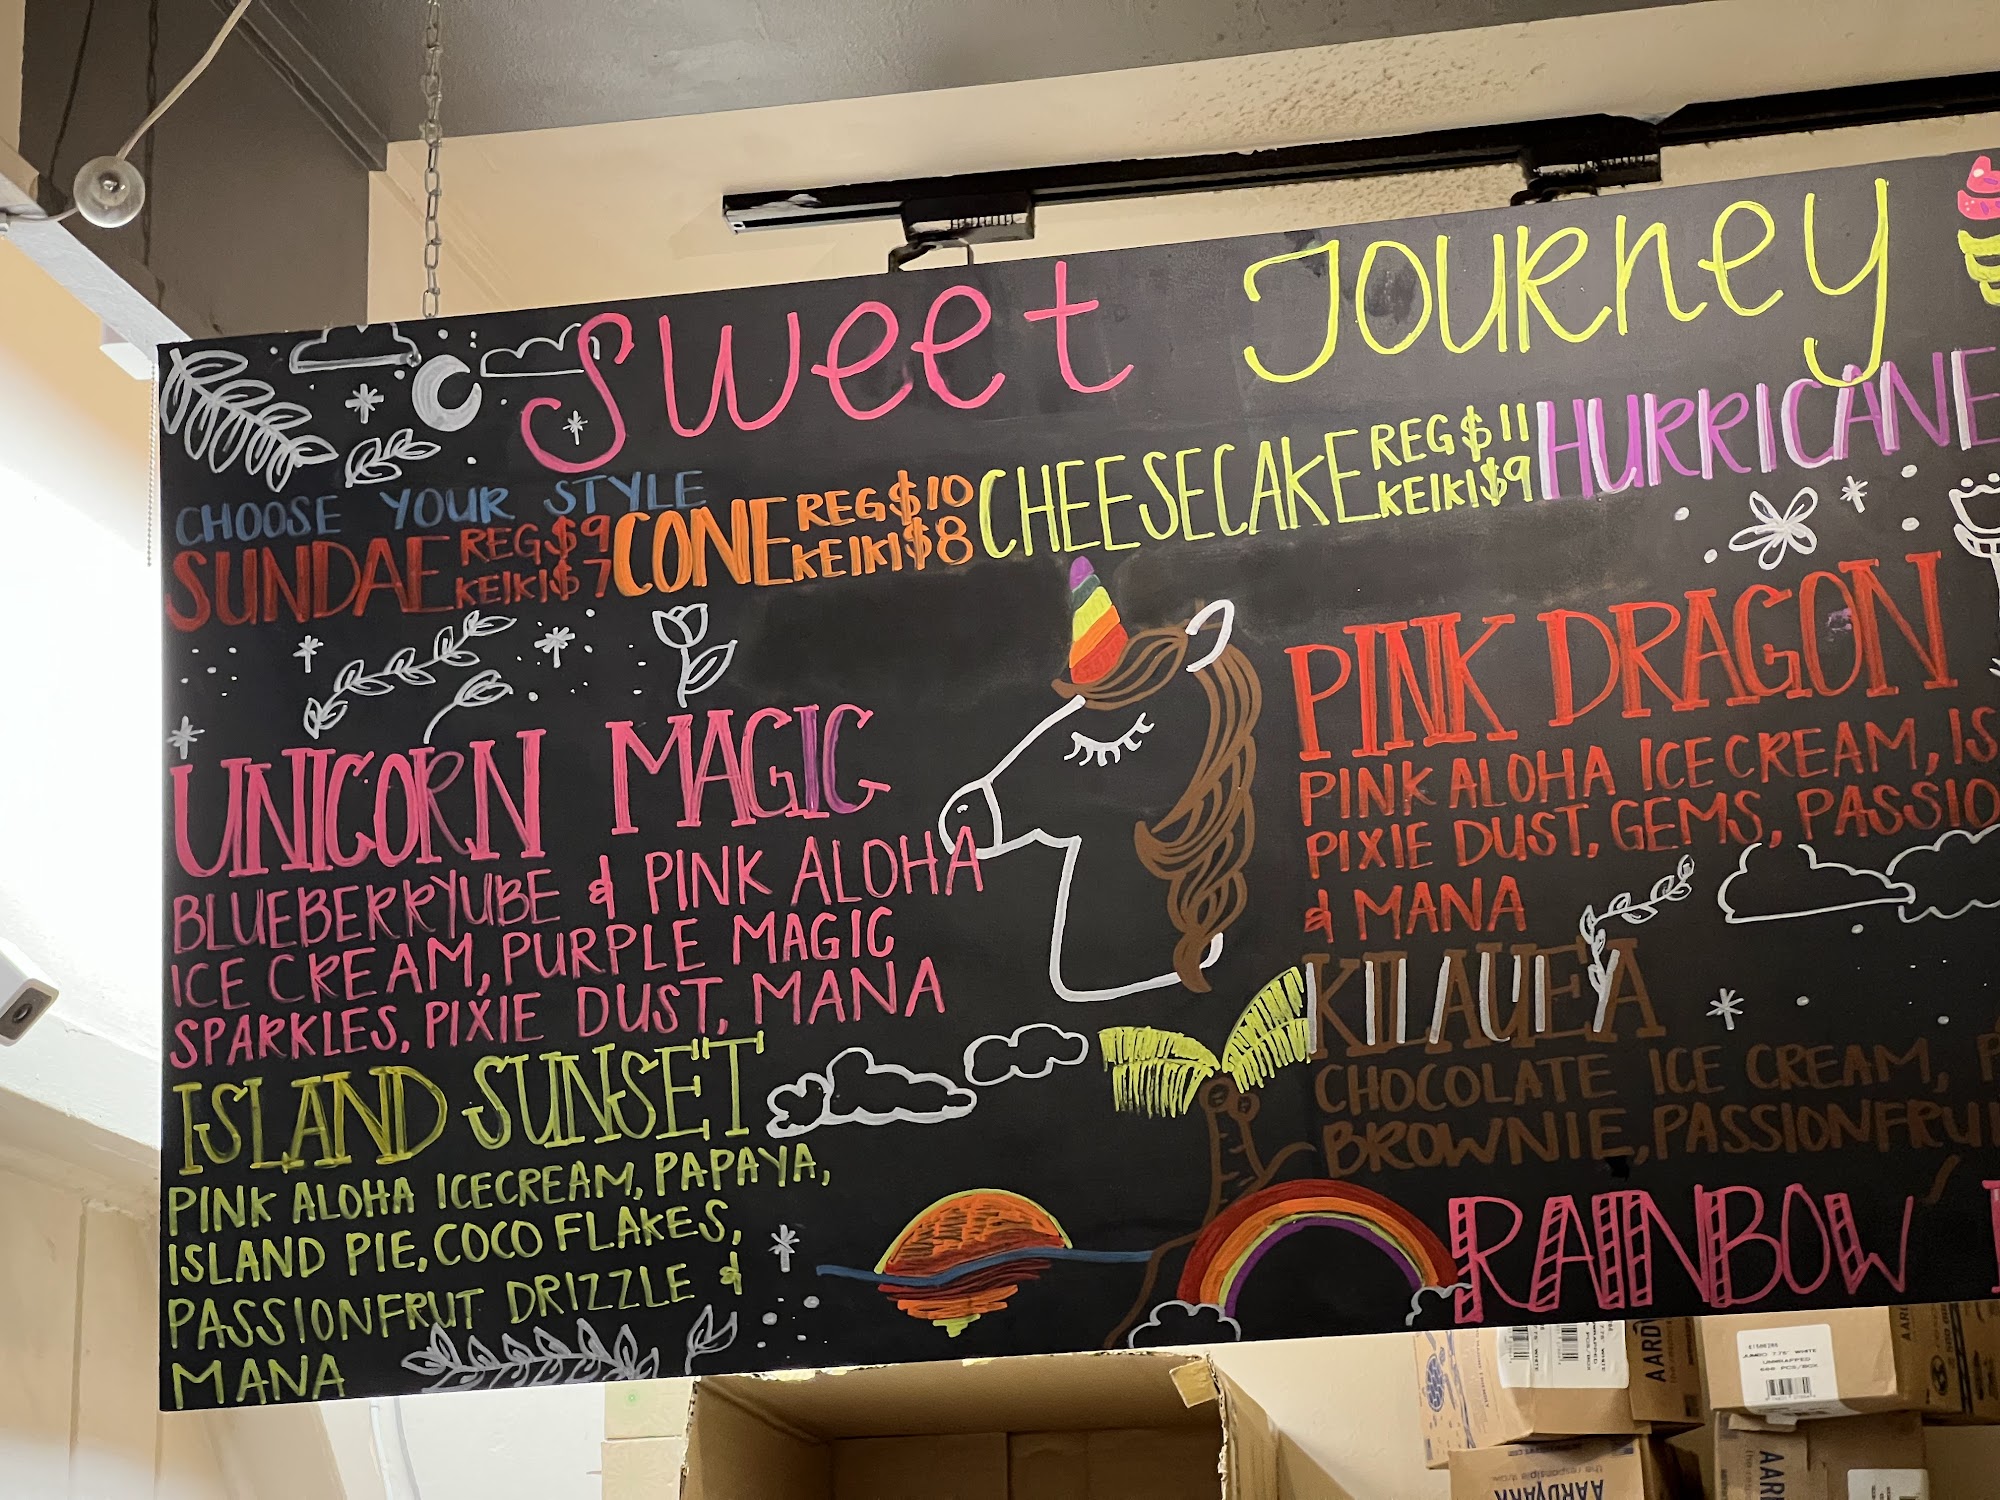 Sweet Journey
CHOOSE YOUR STYLE
SUNDAE REG $9 KEIKI $7
CONE REG $10 KEIKI $8
CHEESECAKE REG $11 KEIKI $9
HURRICANE
UNICORN MAGIC
BLUEBERRYUBE & PINK ALOHA
ICE CREAM, PURPLE MAGIC
SPARKLES, PIXIE DUST, MANA
ISLAND SUNSET
PINK ALOHA ICECREAM, PAPAYA,
ISLAND PIE, COCO FLAKES,
PASSIONFRUT DRIZZLE &
MANA
PINK DRAGON
PINK ALOHA ICE CREAM, IS
PIXIE DUST, GEMS, PASSIO
& MANA
KILAUEA
CHOCOLATE ICE CREAM, P
BROWNIE, PASSIONFRUI
RAINBOW
JUMBO 7.75" WHITE
UNWRAPPED
AARDVARK